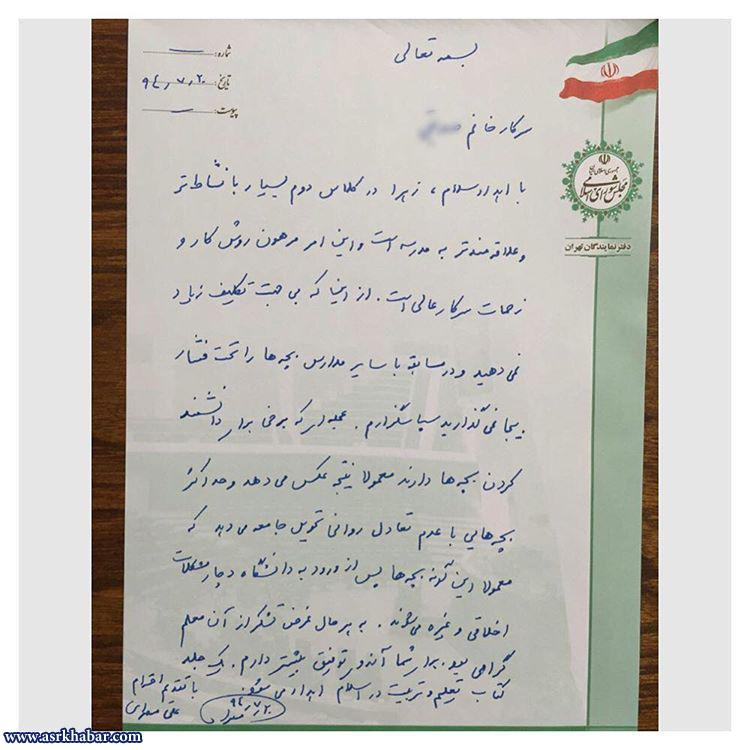 بسمه تعالی
شماره:
تاریخ: ۹۴٫۷٫۲۰
پیوست:
جمهوری اسلامی ایران
مجلس شورای اسلامی
دفتر نمایندگان تهران
سرکار خانم
با اهداء سلام، زهرا در کلاس دوم بسیار با نشاط‌تر
و علاقه‌مندتر به مدرسه است و این امر مرهون روش کار و
زحمات سرکار عالی است. از اینکه بی جهت تکلیف زیاد
نمی‌دهید و در مسابقه با سایر مدارس بچه‌ها را تحت فشار
بیجا نمی‌گذارید سپاسگزارم. عجله‌ای که برخی برای دانشمند
کردن بچه‌ها دارند معمولا نتیجه عکس می‌دهد و حداکثر
بچه‌هایی با عدم تعادل روانی تحویل جامعه می‌دهد که
معمولا این گونه بچه‌ها پس از ورود به دانشگاه دچار مشکلات
اخلاقی و غیره می‌شوند. به هر حال غرض تشکر از آن معلم
گرامی بود. برای شما آرزوی توفیق بیشتر دارم. یک جلد
کتاب تعلیم و تربیت در اسلام اهداء می‌شود.
با تقدیم احترام
علی مطهری
۹۴٫۷٫۲۰
www.asrkhabar.com